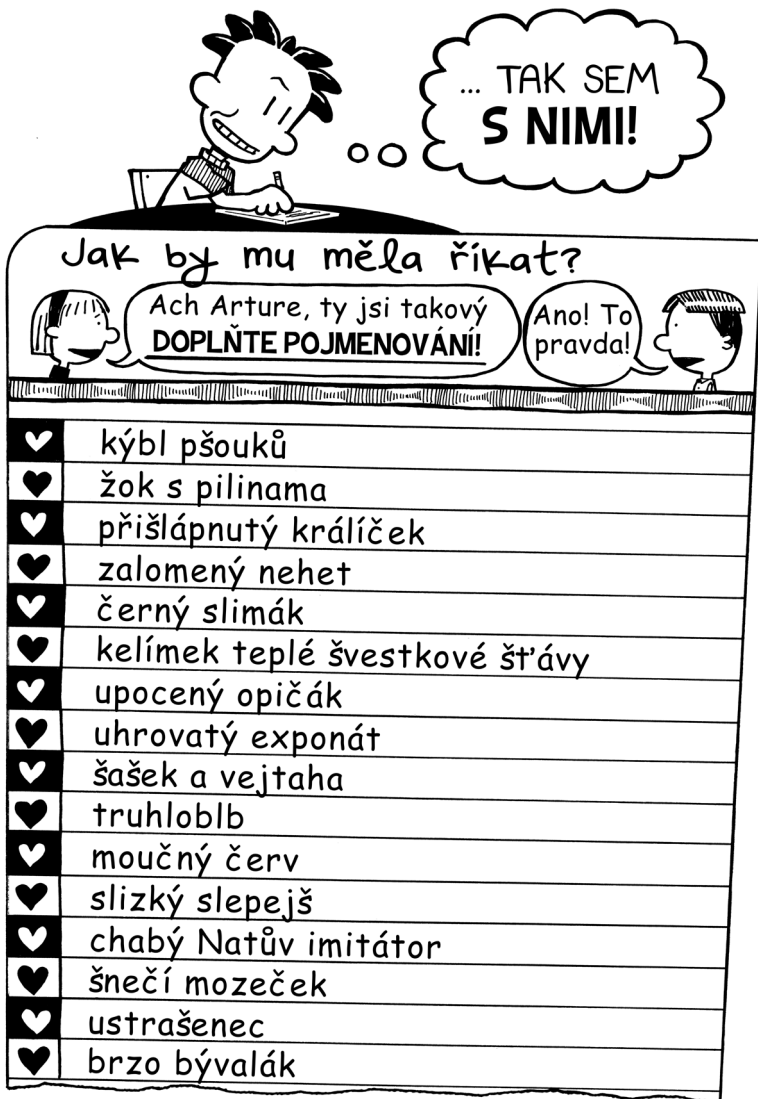 ... TAK SEM
S NIMI!
Jak by mu měla říkat?
Ach Arture, ty jsi takový
DOPLŇTE POJMENOVÁNÍ!
Ano! To
pravda!
kýbl pšouků
žok s pilinama
přišlápnutý králíček
zalomený nehet
černý slimák
kelímek teplé švestkové šťávy
upocený opičák
uhrovatý exponát
šašek a vejtaha
truhloblb
moučný červ
slizký slepejš
chabý Natův imitátor
šnečí mozeček
ustrašenec
brzo bývalák